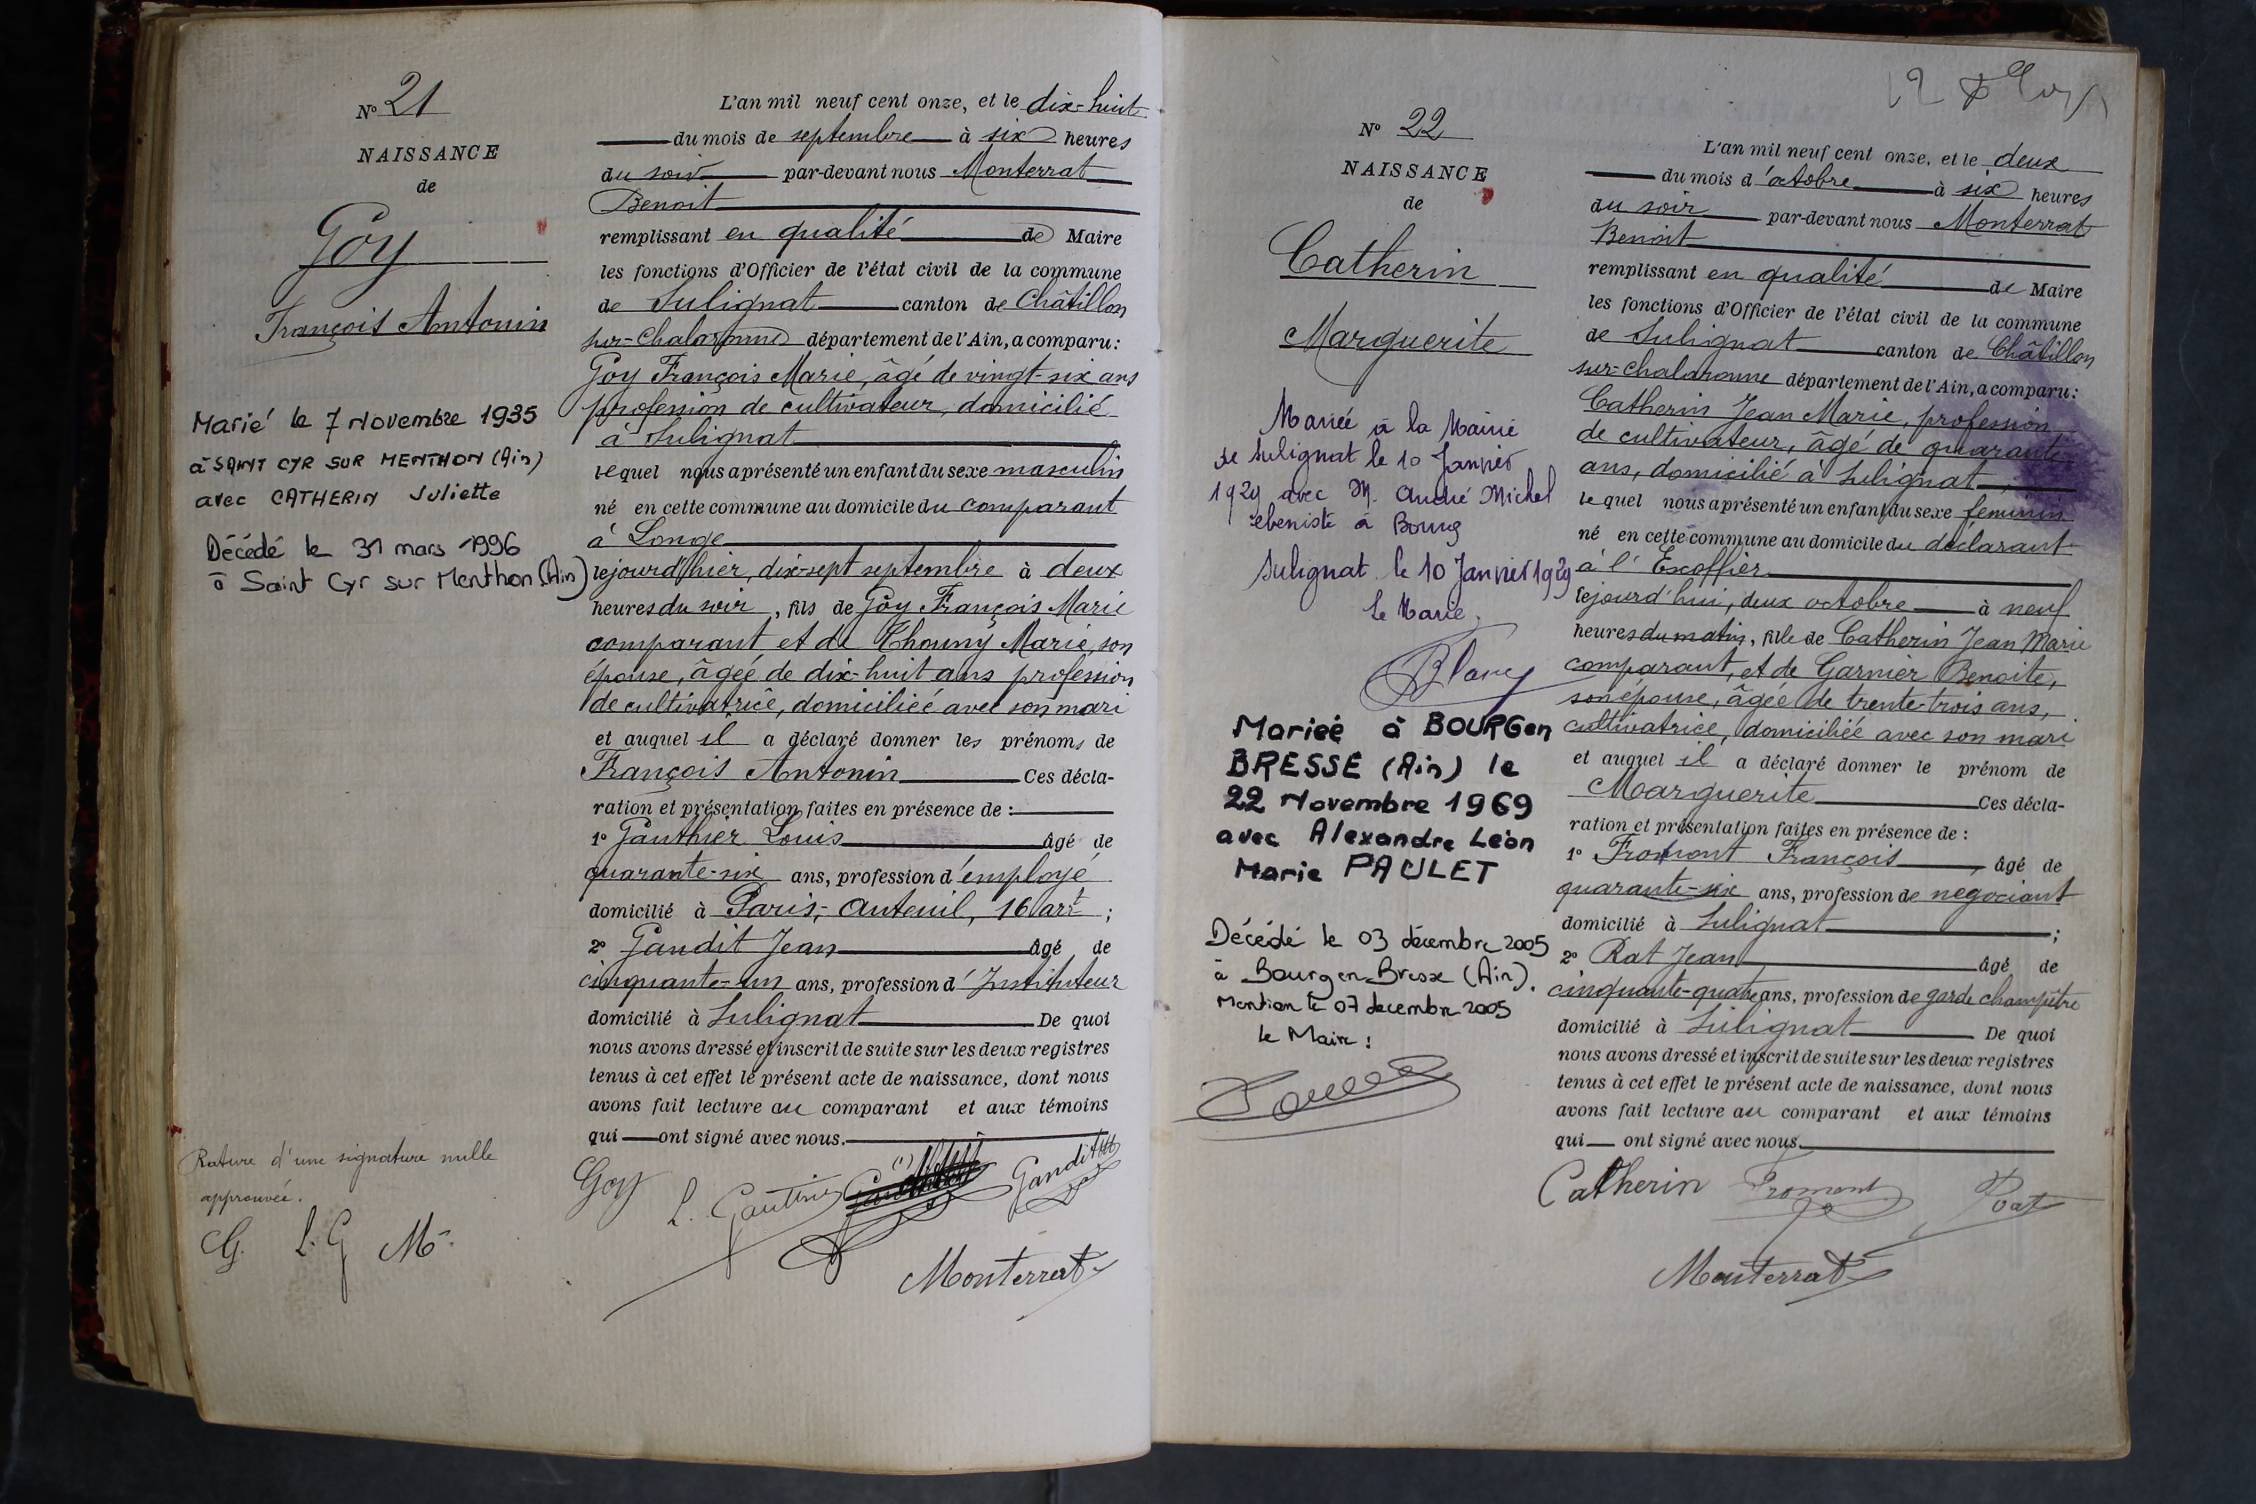 N° 21
NAISSANCE
de
Goy
François Antonin
Marié le 7 Novembre 1935
à SAINT CYR SUR MENTHON (Ain)
avec CATHERIN Juliette
Décédé le 31 mars 1996
à Saint Cyr sur Menthon (Ain)
Rature d'une signature nulle
approuvée.
G. L. G M
L'an mil neuf cent onze, et le dix-huit
du mois de septembre à six heures
du soir par-devant nous Monterrat
Benoit
remplissant en qualité de Maire
les fonctions d'Officier de l'état civil de la commune
de Sulignat canton de Châtillon
sur-Chalaronne département de l'Ain, a comparu:
Goy François Marie, âgé de vingt-six ans
profession de cultivateur, domicilié
à Sulignat
lequel nous a présenté un enfant du sexe masculin
né en cette commune au domicile du comparant
à Longe
lejourd'hier, dix-sept septembre à deux
heures du soir, fils de Goy François Marie
comparant et de Thouny Marie, son
épouse, âgée de dix-huit ans profession
de cultivatrice, domiciliée avec son mari
et auquel il a déclaré donner les prénoms de
François Antonin Ces décla-
ration et présentation faites en présence de :
1° Gauthier Louis âgé de
quarante-six ans, profession d'employé
domicilié à Paris, Auteuil, 16 arrt ;
2° Gandit Jean âgé de
cinquante-un ans, profession d'Instituteur
domicilié à Sulignat De quoi
nous avons dressé et inscrit de suite sur les deux registres
tenus à cet effet le présent acte de naissance, dont nous
avons fait lecture au comparant et aux témoins
qui ont signé avec nous.
Goy L. Gauthier (1) Gandit
Monterrat
N° 22
NAISSANCE
de
Catherin
Marguerite
Mariée à la Mairie
de Sulignat le 10 Janvier
1929 avec M. André Michel
ébeniste à Bourg
Sulignat le 10 Janvier 1929
Le Maire,
Blanc
Mariée à BOURG en
BRESSE (Ain) le
22 Novembre 1969
avec Alexandre Léon
Marie PAULET
Décédé le 03 décembre 2005
à Bourg en Bresse (Ain).
Mention le 07 decembre 2005
le Maire :
L'an mil neuf cent onze, et le deux
du mois d'octobre à six heures
du soir par-devant nous Monterrat
Benoit
remplissant en qualité de Maire
les fonctions d'Officier de l'état civil de la commune
de Sulignat canton de Châtillon
sur-Chalaronne département de l'Ain, a comparu:
Catherin Jean Marie, profession
de cultivateur, âgé de quarante
ans, domicilié à Sulignat,
lequel nous a présenté un enfant du sexe feminin
né en cette commune au domicile du déclarant
à l'Escoffier
lejourd'hui, deux octobre à neuf
heures du matin, fille de Catherin Jean Marie
comparant, et de Garnier Benoite,
son épouse, âgée de trente-trois ans,
cultivatrice, domiciliée avec son mari
et auquel il a déclaré donner le prénom de
Marguerite Ces décla-
ration et présentation faites en présence de :
1° Fromont François, âgé de
quarante-six ans, profession de negociant
domicilié à Sulignat ;
2° Rat Jean âgé de
cinquante-quatre ans, profession de garde champêtre
domicilié à Sulignat De quoi
nous avons dressé et inscrit de suite sur les deux registres
tenus à cet effet le présent acte de naissance, dont nous
avons fait lecture au comparant et aux témoins
qui ont signé avec nous.
Catherin Fromont Rat
Monterrat